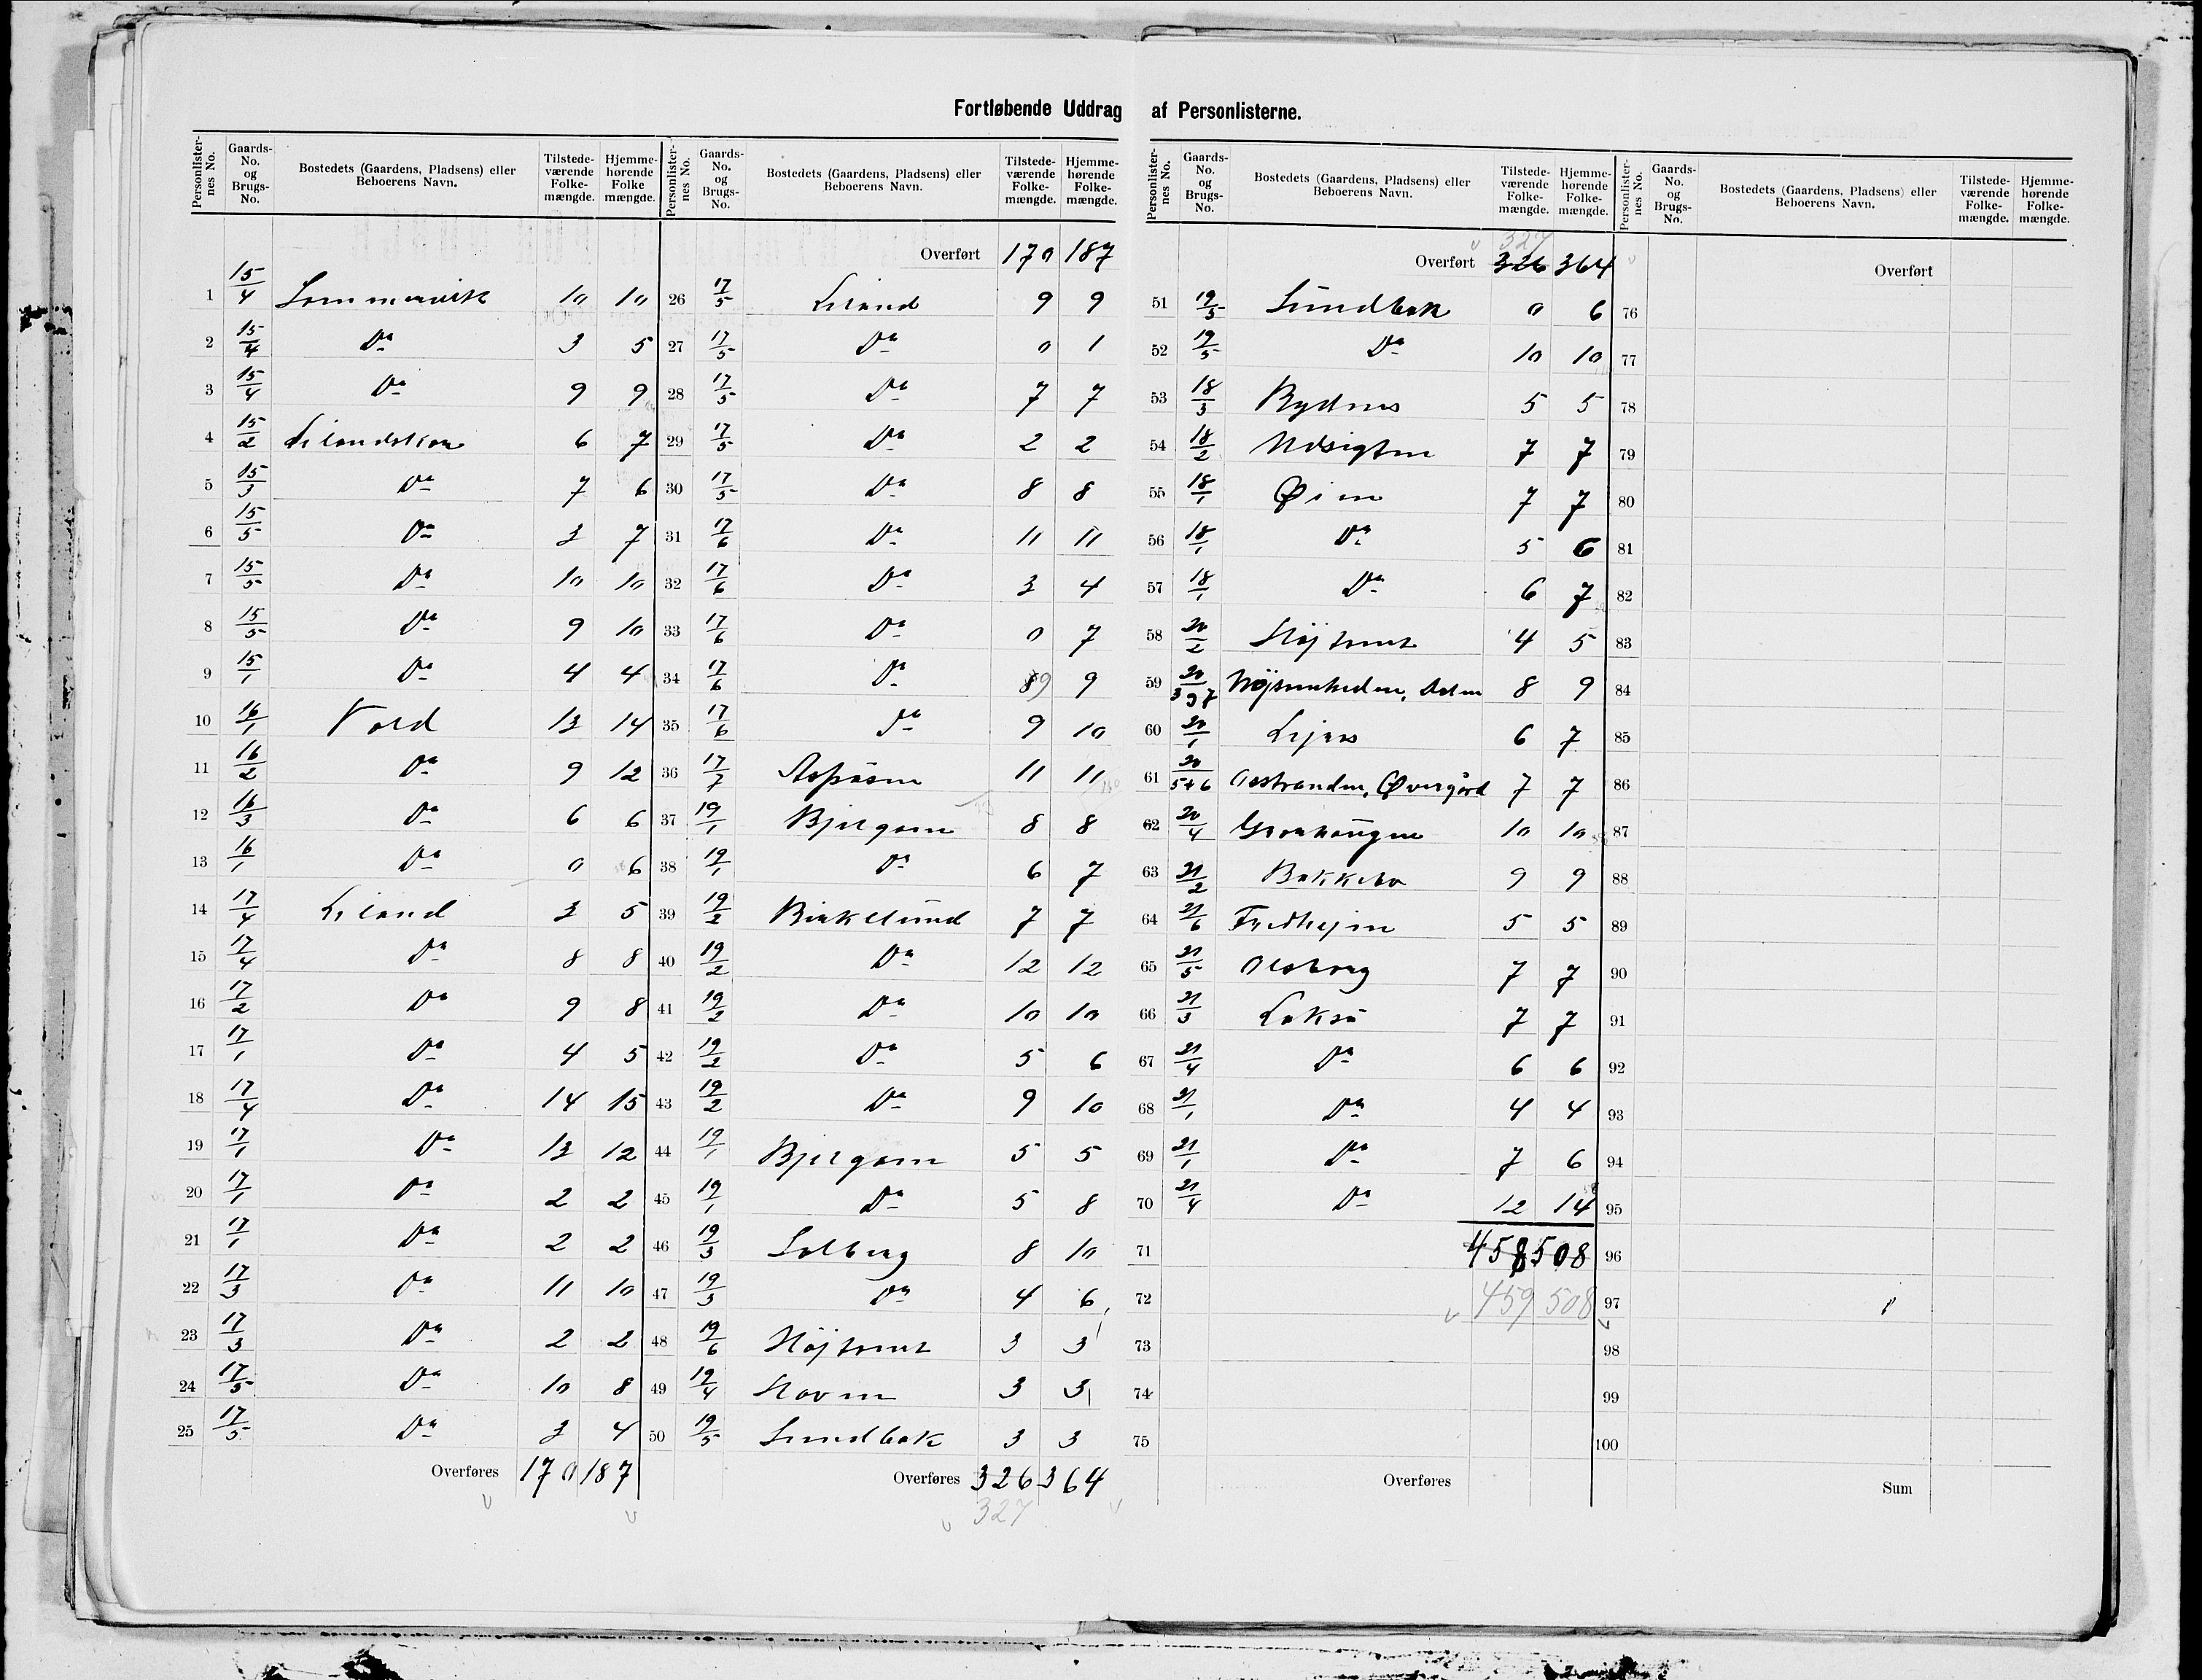 Fortløbende Uddrag af Personlisterne.
Personlisternes No. Gaards-No. og Brugs-No. Bostedets (Gaardens, Pladsens) eller Beboerens Navn. Tilstedeværende Folkemængde. Hjemmehørende Folkemængde.
1 15/4 Sommervik 10 10
2 15/4 Do 3 5
3 15/4 Do 9 9
4 15/2 6 7
5 15/3 Do 7 6
6 15/5 Do 3 7
7 15/5 Do 10 10
8 15/5 Do 9 10
9 15/1 Do 4 4
10 16/1 Vold 13 14
11 16/2 Do 9 12
12 16/3 Do 6 6
13 16/1 Do 0 6
14 17/4 Leland 3 5
15 17/4 Do 8 8
16 17/2 Do 9 8
17 17/1 Do 4 5
18 17/4 Do 14 15
19 17/1 Do 13 12
20 17/1 Do 2 2
21 17/1 Do 2 2
22 17/3 Do 11 10
23 17/3 Do 2 2
24 17/5 Do 10 8
25 17/5 Do 3 4
Overføres 170 187
Overført 170 187
26 17/5 Leland 9 9
27 17/5 Do 0 1
28 17/5 Do 7 7
29 17/5 Do 2 2
30 17/5 Do 8 8
31 17/6 Do 11 11
32 17/6 Do 3 4
33 17/6 Do 0 7
34 17/6 Do 8 9 9
35 17/6 Do 9 10
36 17/7 Aspåsen 11 11
37 19/1 Bjergam 8 8
38 19/1 Do 6 7
39 19/2 Birkelund 7 7
40 19/2 Do 12 12
41 19/2 Do 10 10
42 19/2 Do 5 6
43 19/2 Do 9 10
44 19/1 Bjergam 5 5
45 19/1 Do 5 8
46 19/3 Solberg 8 10
47 19/3 Do 4 6
48 19/6 Højtomt 3 3
49 19/4 Hoven 3 3
50 19/5 Sundbak 3 3
Overføres 326 364
327
327
Overført 326 364
51 19/5 Sundbak 0 6
52 19/5 Do 10 10
53 18/3 Rydnes 5 5
54 18/2 Udsigten 7 7
55 18/1 Øien 7 7
56 18/1 Do 5 6
57 18/1 Do 6 7
58 20/2 Højtomt 4 5
59 20/3 &7 Nøjsomheden, Dalen 8 9
60 20/1 6 7
61 20/5+6 Øvergård 7 7
62 20/4 Granhaugen 10 10
63 21/2 Bakkebo 9 9
64 21/6 Fredhejm 5 5
65 21/5 7 7
66 21/3 Lakså 7 7
67 21/4 Do 6 6
68 21/1 Do 4 4
69 21/1 Do 7 6
70 21/4 Do 12 14
71 458 508
72 459 508
73
74
75
Overføres
Overført
76
77
78
79
80
81
82
83
84
85
86
87
88
89
90
91
92
93
94
95
96
97
98
99
100
Sum